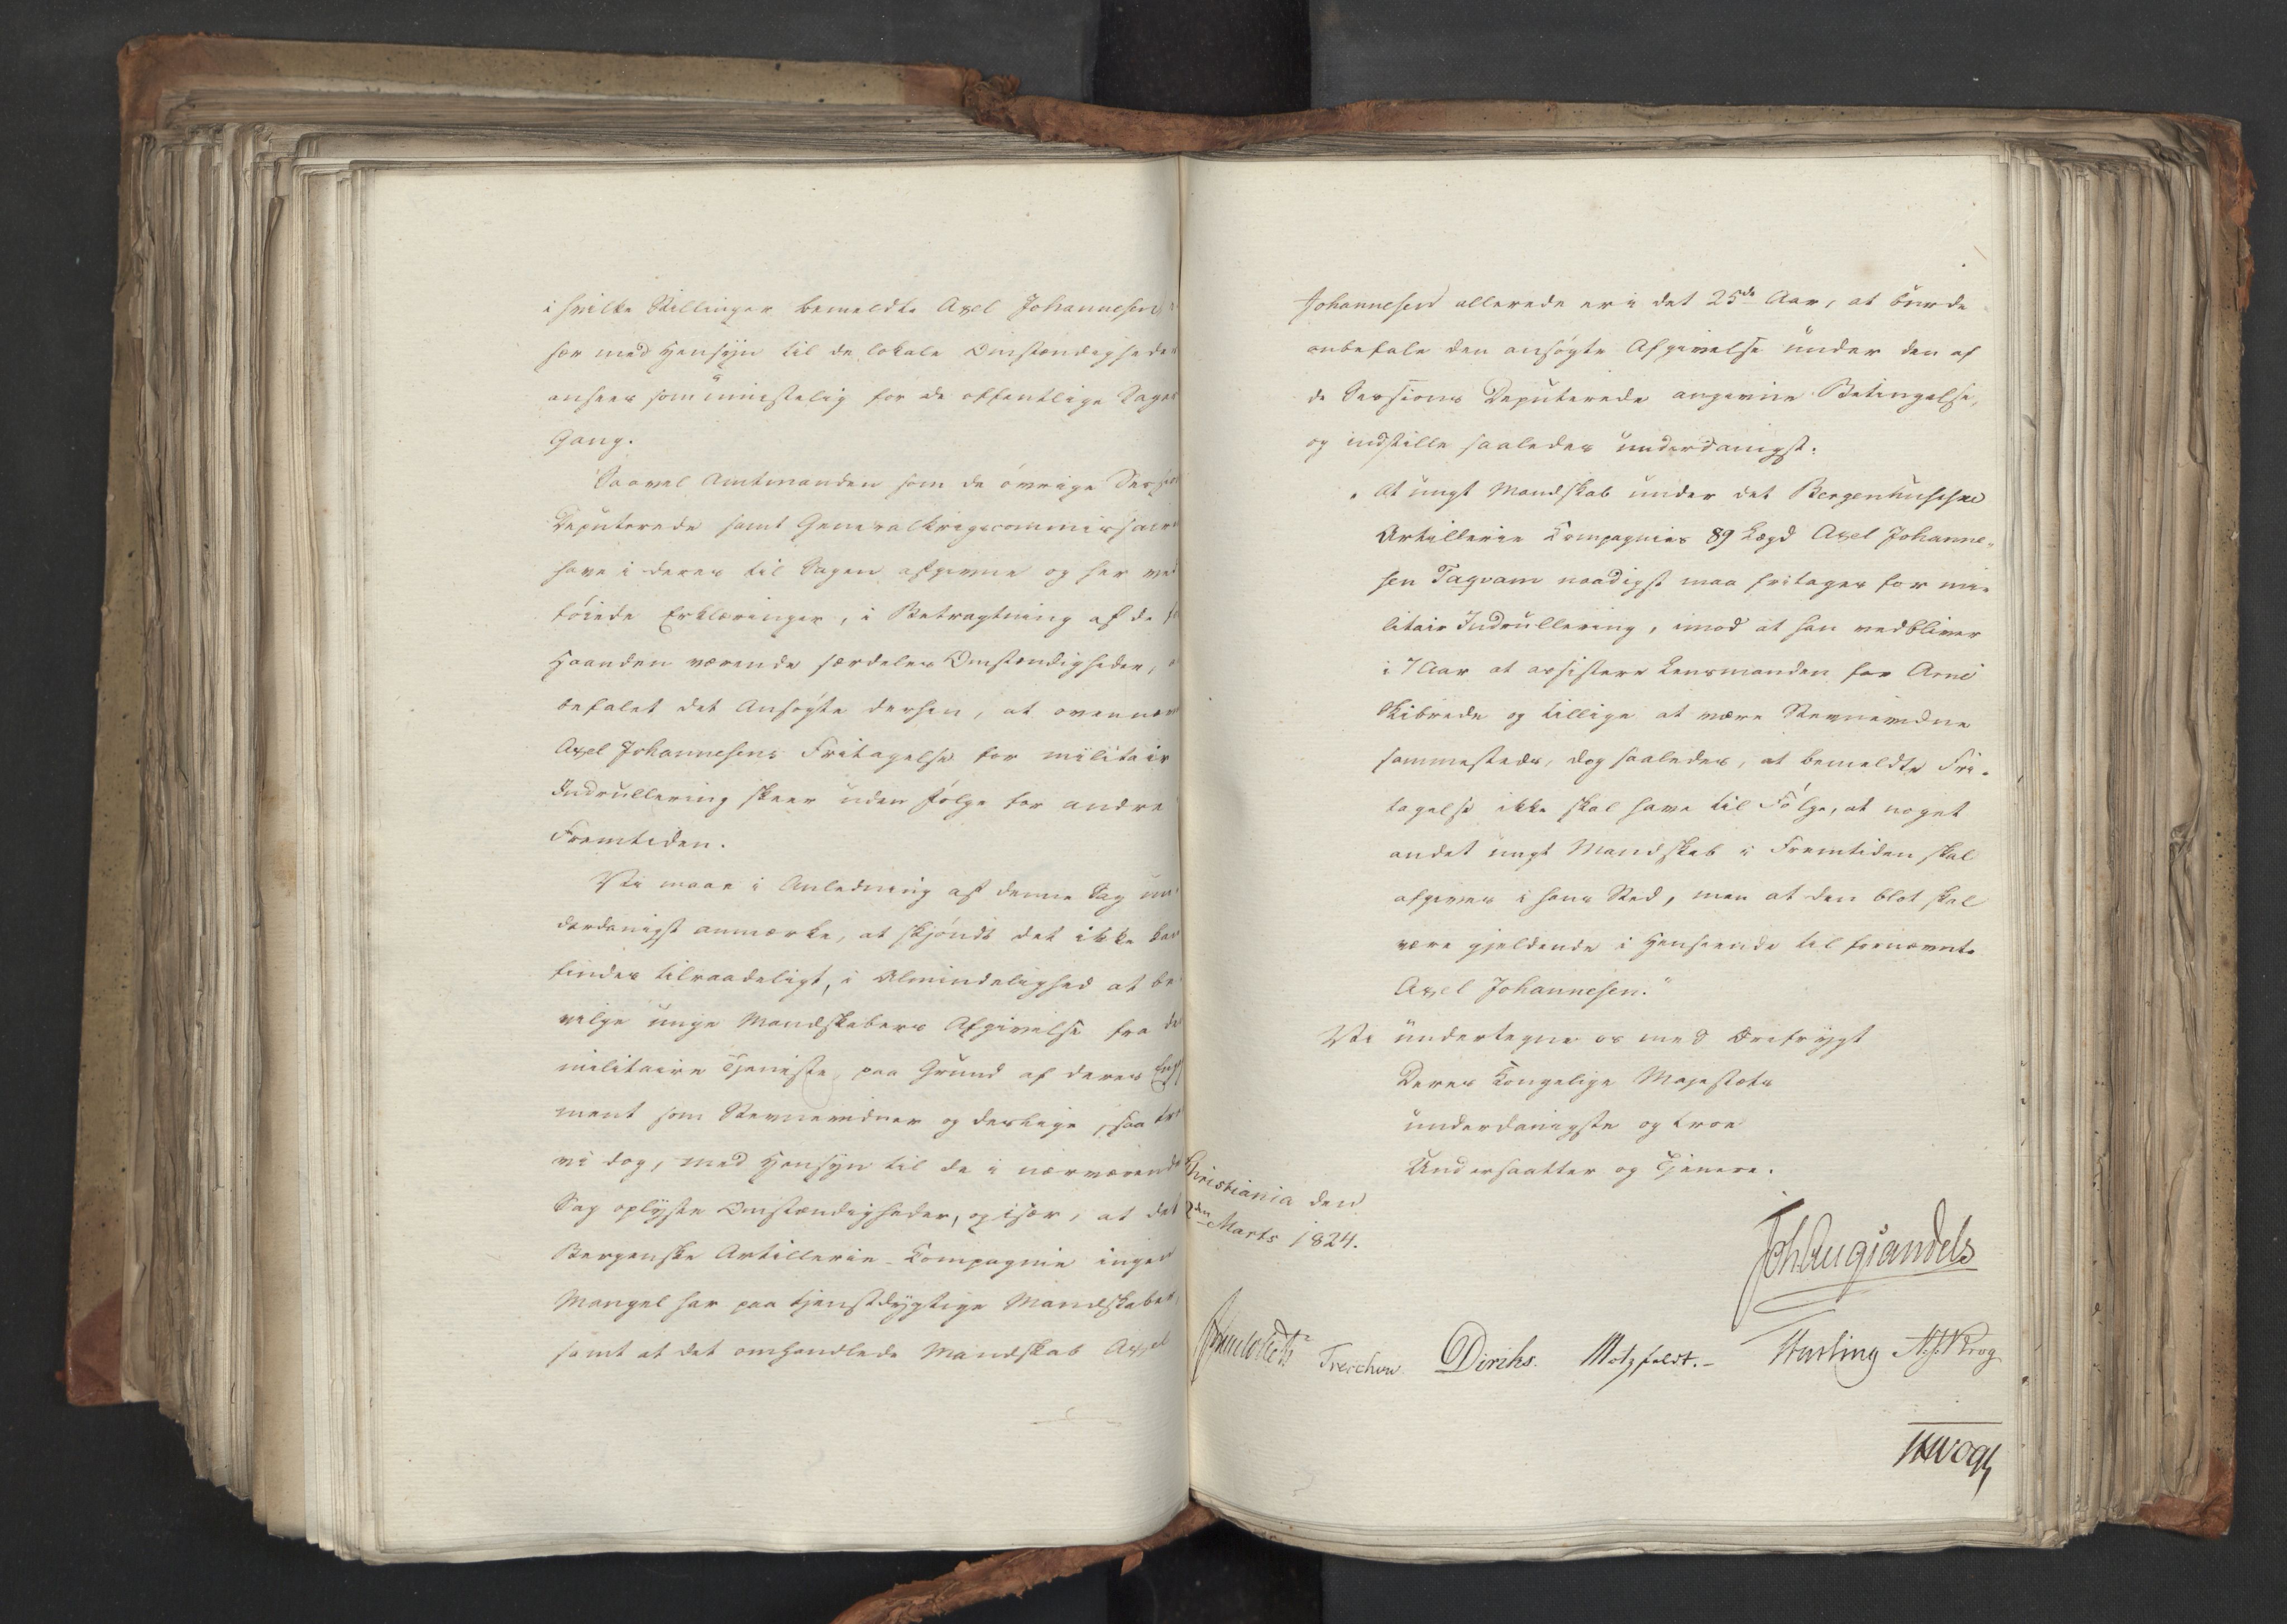 i hvilke Stillinger bemeldte Axel Johannesen
hør med Hensyn til de lokale Omstændigheder
ansees som umistelig for de offentlige Sagers
Gang.
Saavel Amtmanden som de øvrige Sessions
Deputerede samt Generalkrigscommissairen
have i deres til Sagen afgivne og her ved
føiede Erklæringer, i Betragtning af de for
Haanden værende særdeles Omstændigheder, an
befalet det Ansøgte dersen, at ovennævnte
Axel Johannesens Fritagelse for militair
Indrullering skeer uden Følge for andre i
Fremtiden.
Vi maae i Anledning af denne Sag un
derdanigst anmærke, at skjøndt det ikke kan
findes tilraadeligt, i Almindelighed at be
vilge unge Mandskabers Afgivelse fra den
militaire Tjeneste, paa Grund af deres Enga
ment som Stevnevidner og deslige, saa troe
vi dog, med Hensyn til de i nærværende
Sag oplyste Omstændigheder, og især, at det
Bergenske Artillerie-Kompagnie ingen
Mangel har paa tjenstdygtige Mandskaber,
samt at det omhandlede Mandskab Axel
Johannesen allerede er i det 25de Aar, at burde
anbefale den ansøgte Afgivelse under den af
de Sessions Deputerede angivne Betingelse,
og indstille saaledes underdanigst:
"At ungt Mandskab under det Bergenhusiske
Artillerie Kompagnies 89 Lægd Axel Johanne„
sen Tagvam naadigst maa fritages for mi„
litair Indrullering, imod at han vedbliver
i 7 Aar at assistere Lensmanden for Arne
Skibrede og tillige at være Stevnevidne
sammesteds, dog saaledes, at bemeldte Fri„
tagelse ikke skal have til Følge, at noget
andet ungt Mandskab i Fremtiden skal
afgives i hans Sted, men at den blot skal
være gjeldende i Henseende til fornævnte
Axel Johannesen."
Vi undertegne os med Ærefrygt
Deres Kongelige Majestæts
underdanigste og troe
Undersaatter og Tjenere.
Christiania den
2den Marts 1824.
Joh Aug Sandels
Treschow Diriks. Motzfeldt.- Hasting N. J. Krog
Vogt